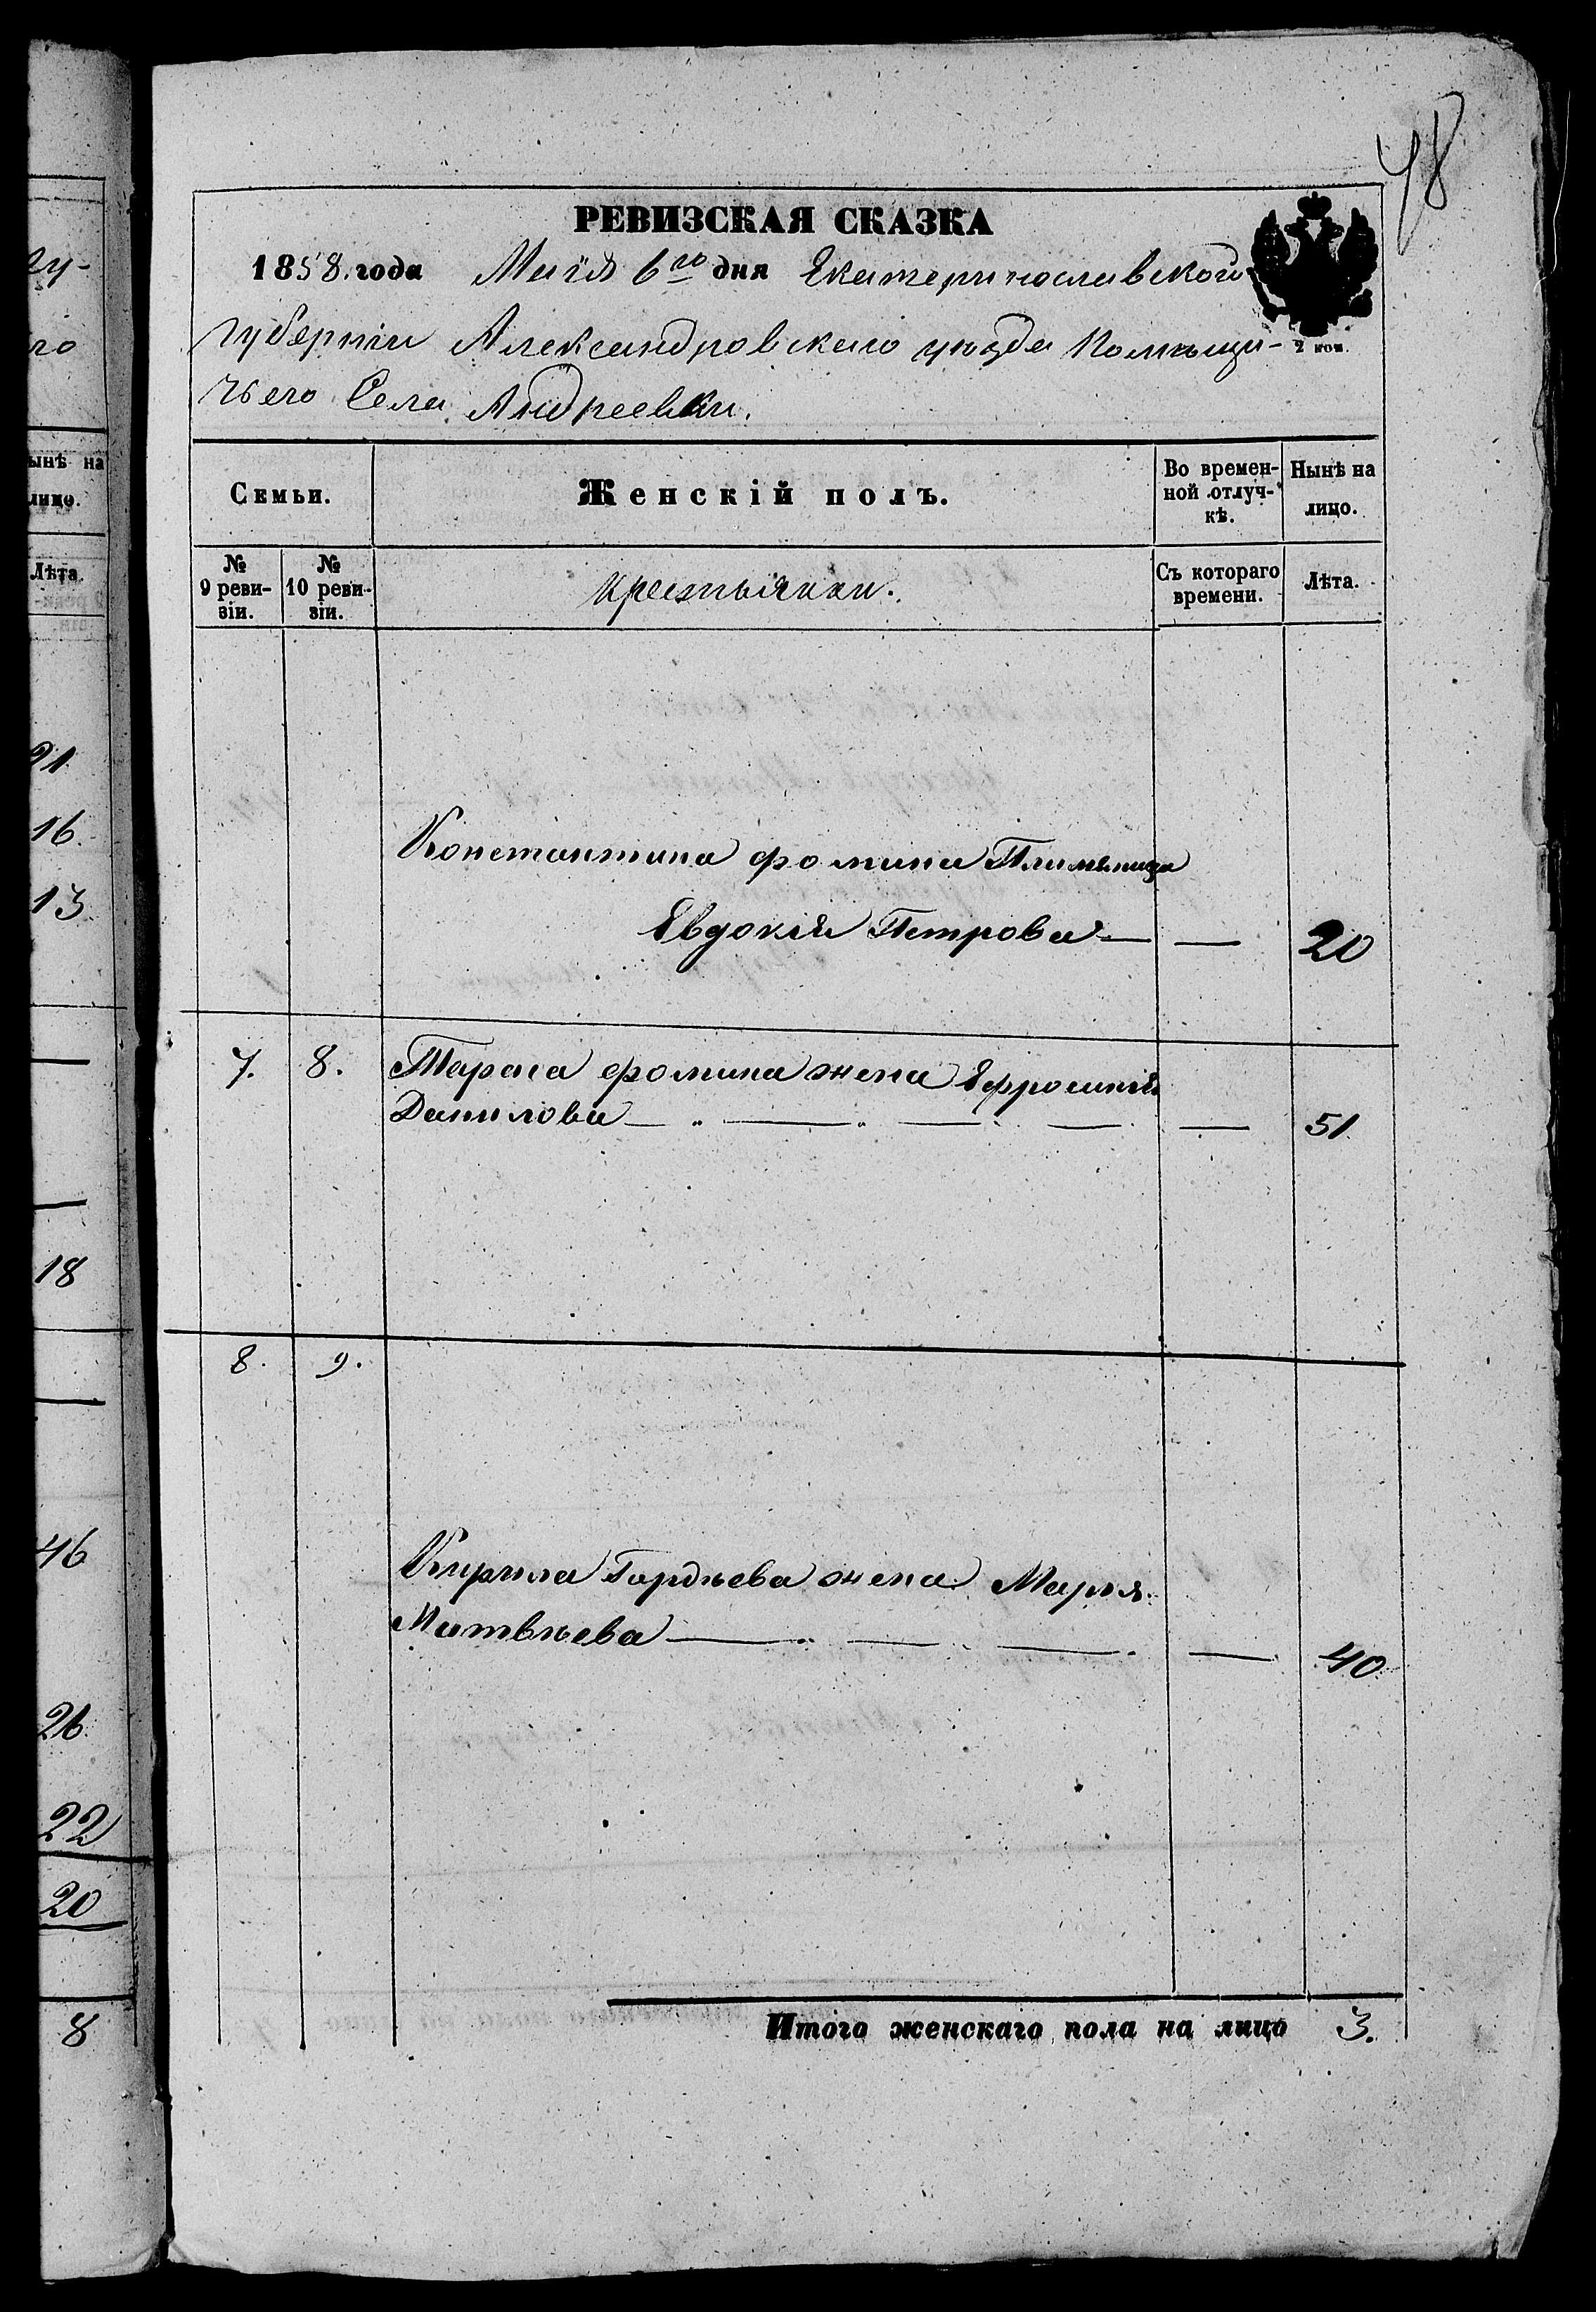 48
РЕВИЗСКАЯ СКАЗКА
1858 года Маія 6го дня Екатеринославской
2 коп.
Губерніи Александровскаго уѣзда Помѣщи-
чьего Села Андреевки.
Семьи.
Женскій полъ.
Во времен-
ной отлуч-
кѣ.
Нынѣ на
лицо.
№
9 реви-
зіи.
№
10 реви-
зіи.
крестьянки.
Съ котораго
времени.
Лѣта.
Константина Фомина Племяница
Евдокія Петрова — — 20
7. 8. Тараса Фомина жена Ефросинія
Данилова — — 51.
8. 9.
Кирила Гордѣева жена Марія
Матвѣева — — 40
Итого женскаго пола на лицо 3.
ынѣ на
лицо.
Лѣта.
21
16.
13.
18
46
26
22
20
8